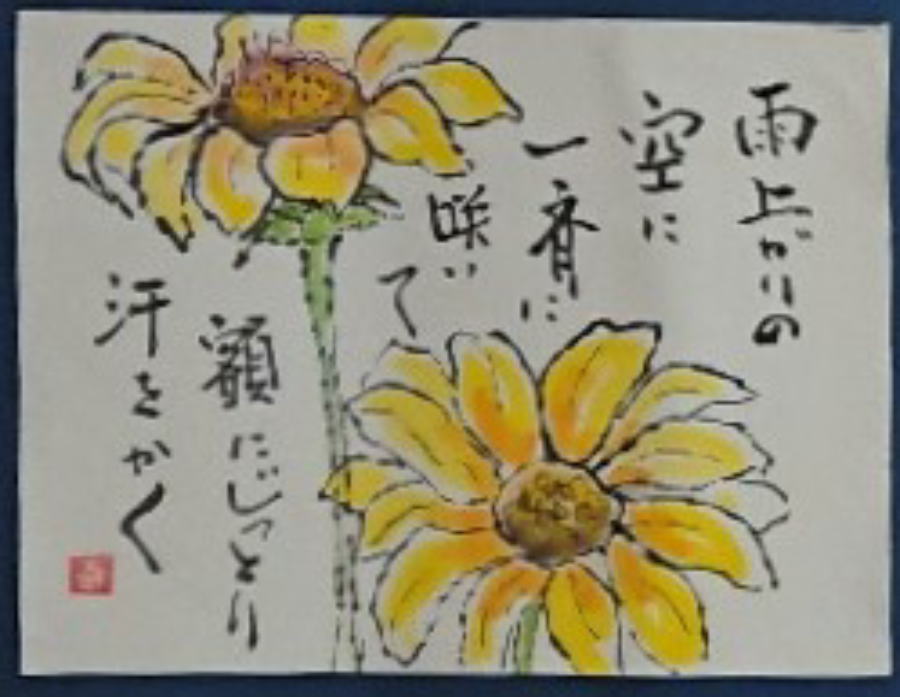 雨上がりの
空に
一斉に
咲いて
額にじっとり
汗をかく